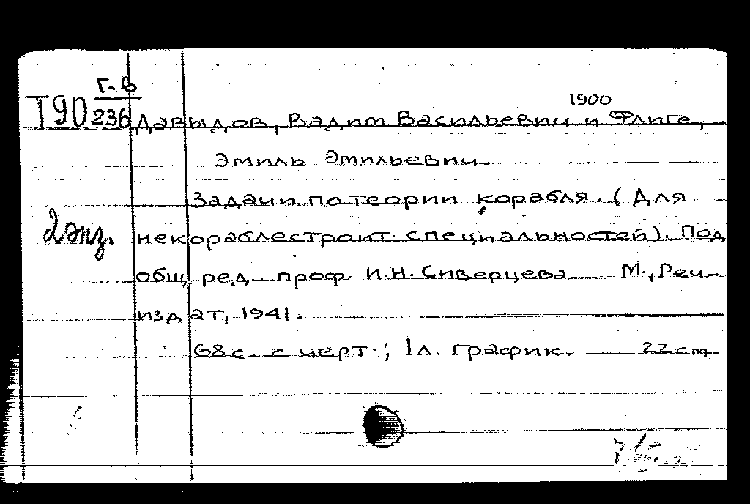 Г-В
Т90 236
1900
Давыдов, Вадим Васильевич и Флиге,
Эмиль Эмильевич
Задачи по теории корабля. (Для
2 экз. некораблестроит. специальностей). Под
общ. ред. проф. И.Н. Сиверцева М., Реч-
издат, 1941.
68 с. с черт.; 1 л. график. 22 см